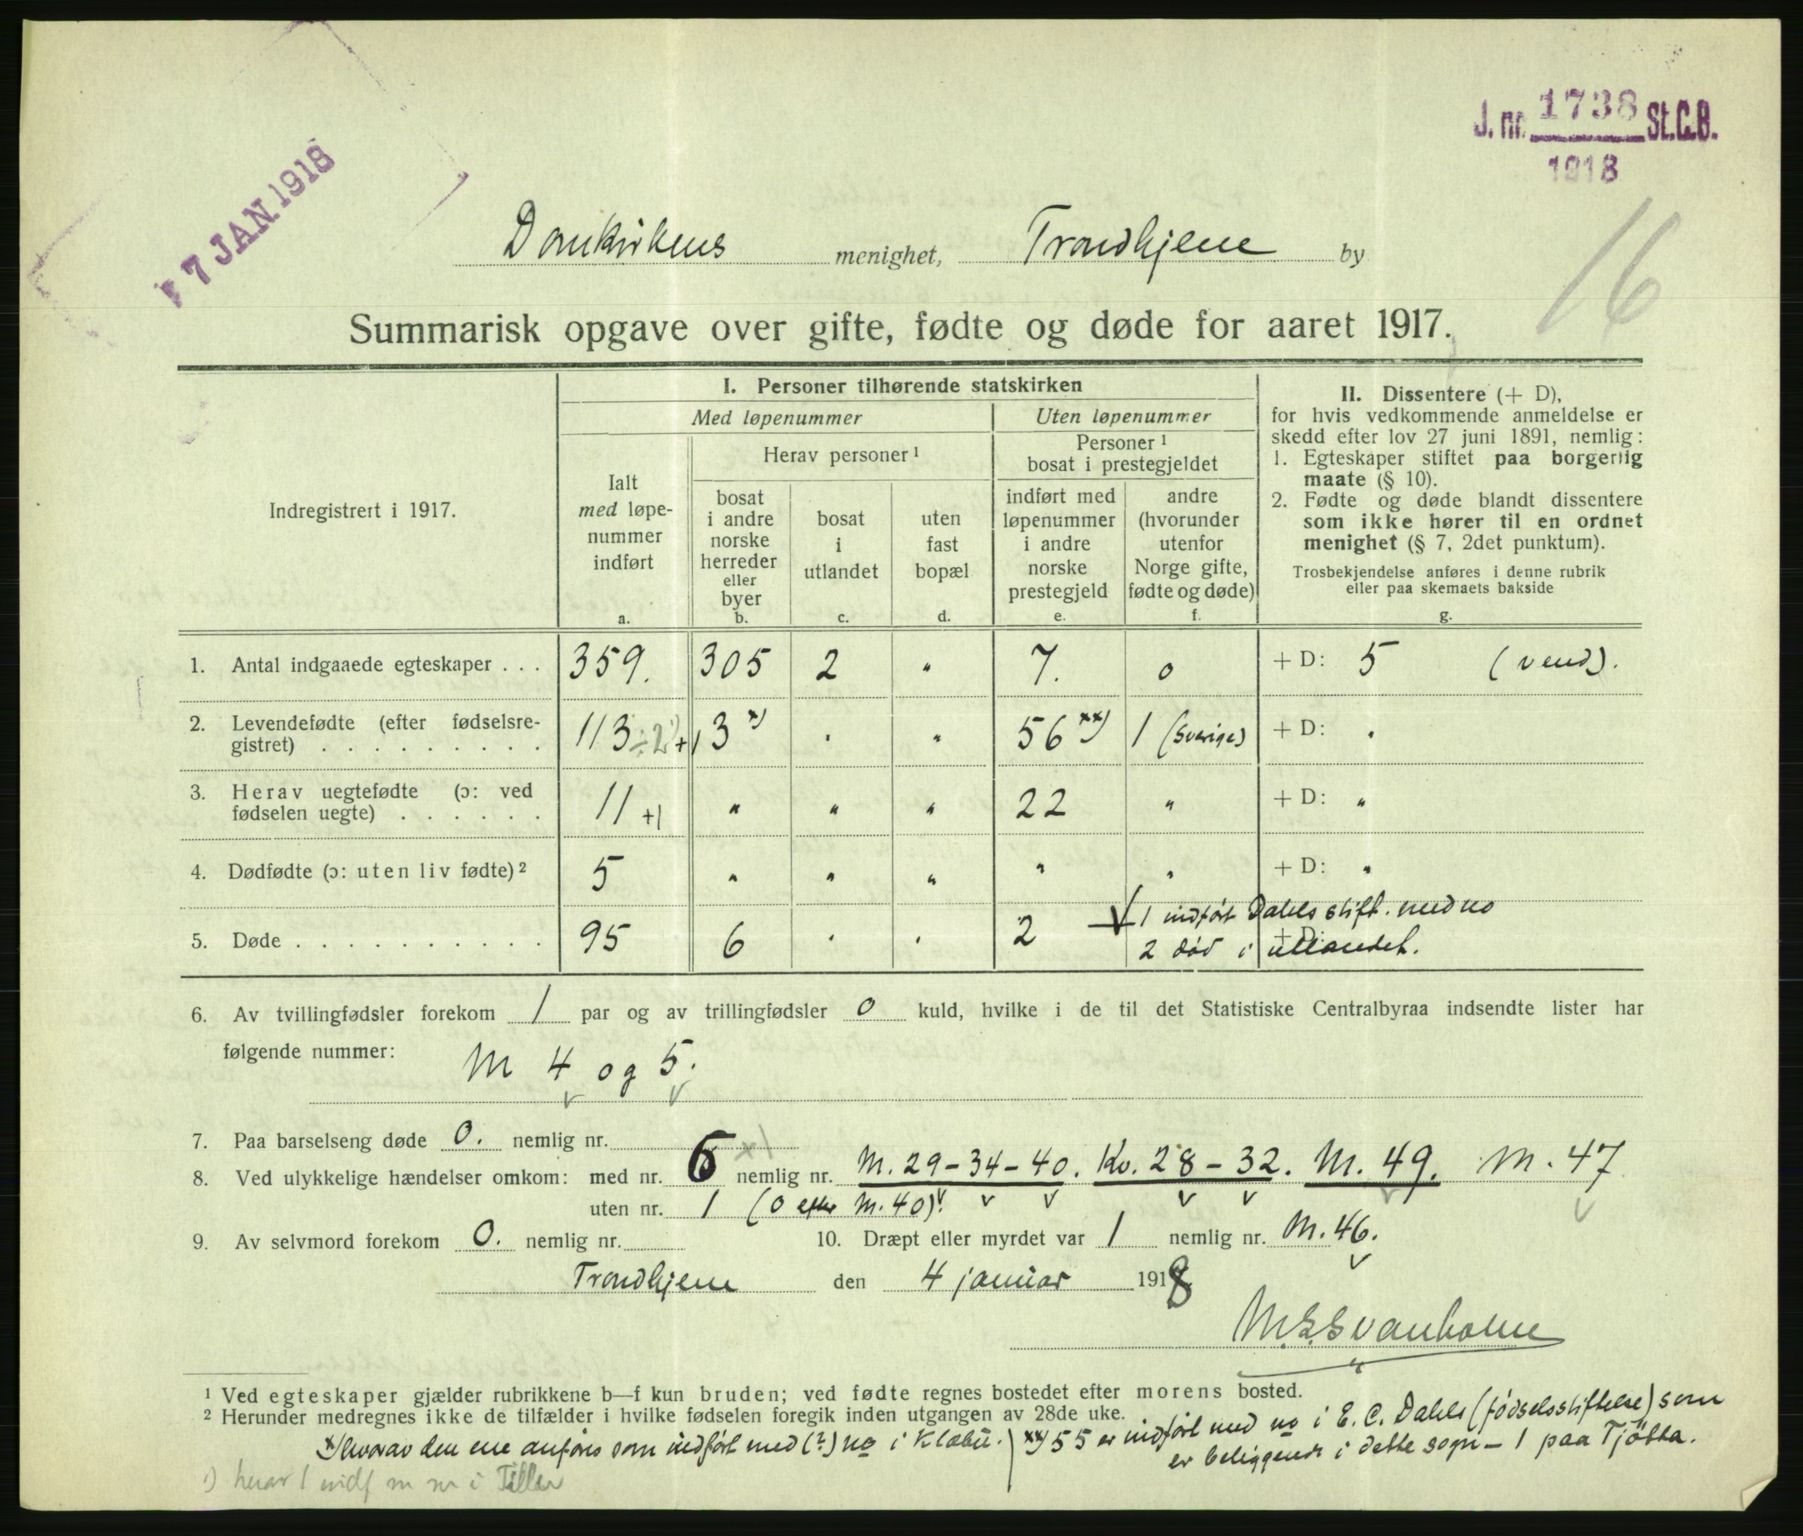 J. nr. 1738 St.C.B.
1918
7 JAN. 1918
16
Domkirkens menighet, Trondhjem by
Summarisk opgave over gifte, fødte og døde for aaret 1917.
Indregistrert i 1917.
I. Personer tilhørende statskirken
Med løpenummer
Uten løpenummer
Ialt
med løpe-
nummer
indført
a.
Herav personer 1
bosat
i andre
norske
herreder
eller
byer
b.
bosat
i
utlandet
c.
uten
fast
bopæl
d.
Personer 1
bosat i prestegjeldet
indført med
løpenummer
i andre
norske
prestegjeld
e.
andre
(hvorunder
utenfor
Norge gifte,
fødte og døde)
f.
II. Dissentere (+ D),
for hvis vedkommende anmeldelse er
skedd efter lov 27 juni 1891, nemlig:
1. Egteskaper stiftet paa borgerlig
maate (§ 10).
2. Fødte og døde blandt dissentere
som ikke hører til en ordnet
menighet (§ 7, 2det punktum).
Trosbekjendelse anføres i denne rubrik
eller paa skemaets bakside
g.
1. Antal indgaaede egteskaper . . . 359. 305 2 " 7. 0 + D: 5 (vend).
2. Levendefødte (efter fødselsre-
gistret) . . . . . . . . . 113 ÷2 1) +1 3 x) . " 56 xx) 1 (Sverige) + D: "
3. Herav uegtefødte (ɔ: ved
fødselen uegte) . . . . . . 11 +1 " " " 22 " + D: "
4. Dødfødte (ɔ: uten liv fødte) 2 5 " " " " " + D: "
5. Døde . . . . . . . . . . 95 6 . . 2 1 indført Dahls stift. med no
+ D:
2 død i utlandet.
6. Av tvillingfødsler forekom 1 par og av trillingfødsler 0 kuld, hvilke i de til det Statistiske Centralbyraa indsendte lister har
følgende nummer: M 4 og 5.
7. Paa barselseng døde 0. nemlig nr.
8. Ved ulykkelige hændelser omkom: med nr. 6 nemlig nr. M. 29-34-40. Kv. 28-32. M. 49. M. 47
uten nr. 1 (0 efter M. 40).
9. Av selvmord forekom 0. nemlig nr. 10. Dræpt eller myrdet var 1 nemlig nr. M. 46.
Trondhjem den 4 januar 1918
M. S. Svanholm
1 Ved egteskaper gjælder rubrikkene b—f kun bruden; ved fødte regnes bostedet efter morens bosted.
2 Herunder medregnes ikke de tilfælder i hvilke fødselen foregik inden utgangen av 28de uke.
x) hvorav den ene anføres som indført med (?) no i Klæbu.
xx) 55 er indført med no i E. C. Dahls (fødselsstiftelse) som
er beliggende i dette sogn - 1 paa Tjøtta.
1) hvor 1 indf m nr i Tiller